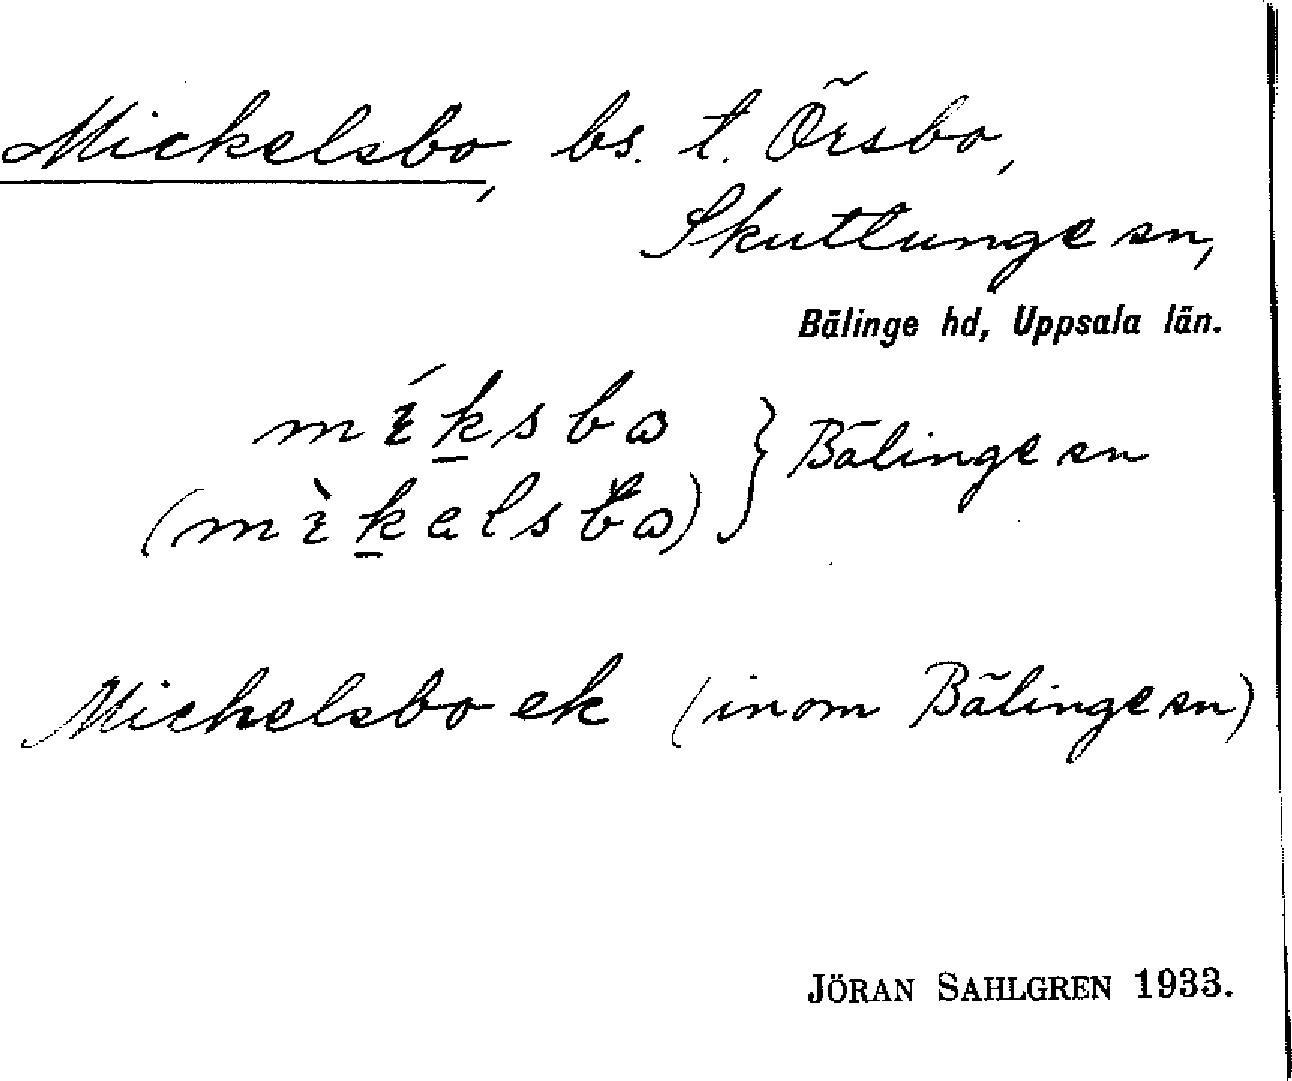 Mickelsbo, bs. t. Örsbo,
Skuttunge sn,
Bälinge hd, Uppsala län.
míksbɷ
(mìkelsbɷ) } Bälinge sn
Mickelsbo ek (inom Bälinge sn)
JÖRAN SAHLGREN 1933.